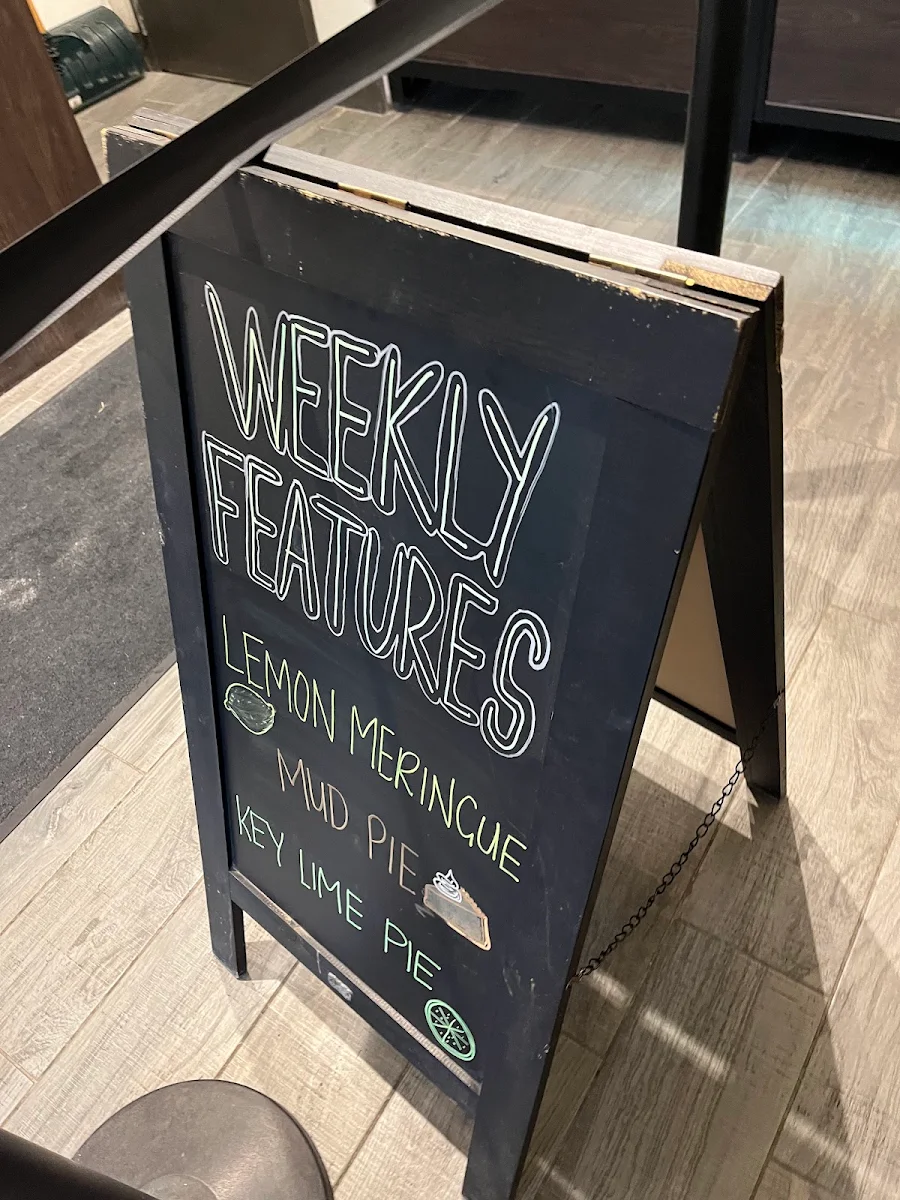 WEEKLY
FEATURES
LEMON MERINGUE
MUD PIE
KEY LIME PIE